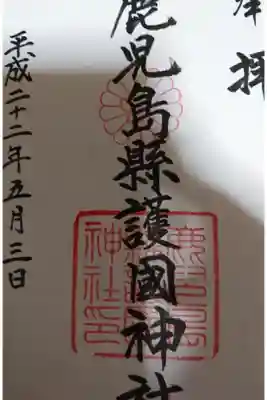 拝
鹿児島縣護國神社
平成二十二年五月三日
鹿児島
神社印